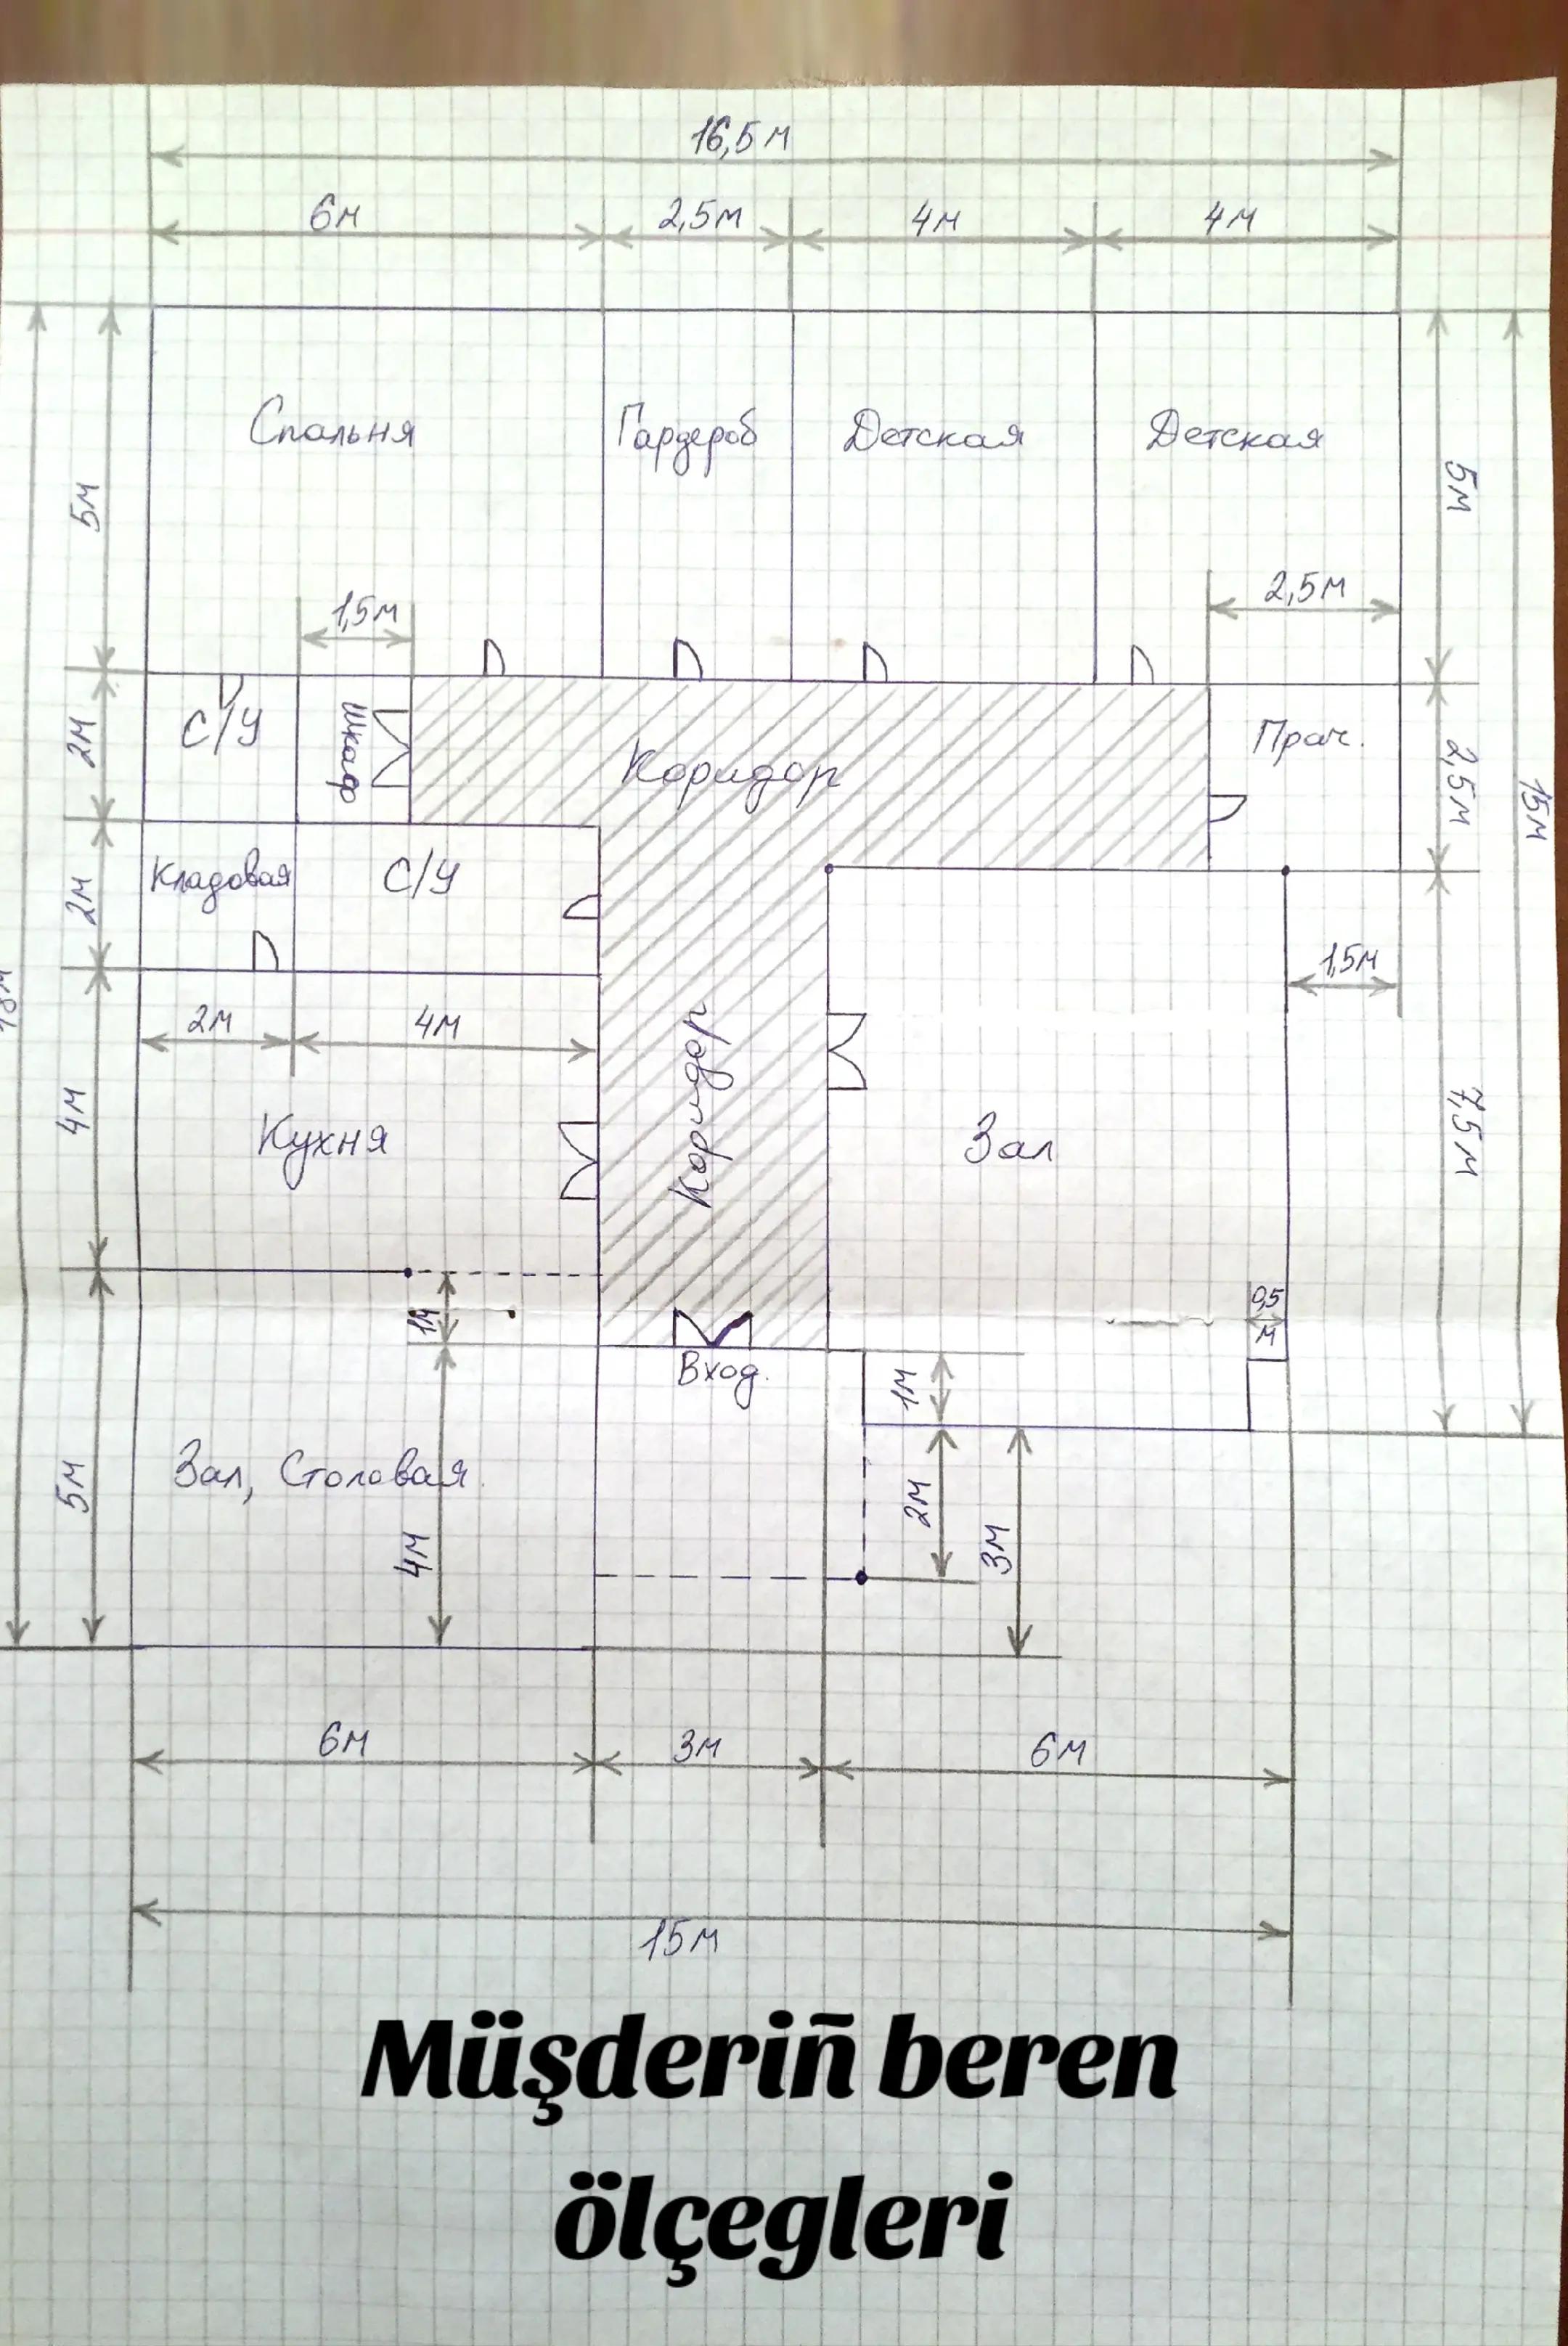 16,5м
6м 2,5м 4м 4м
Спальня Гардероб Детская Детская
5м 5м
1,5м 2,5м
С/У Шкаф Коридор Прач.
2м 2,5м 15м
Кладовая С/У
2м 1,5м
18м
2м 4м
Коридор
4м Кухня Зал 7,5м
1м 0,5 м
Вход.
1м
Зал, Столовая.
5м 4м 2м 3м
6м 3м 6м
15м
Müşderiñ beren
ölçegleri